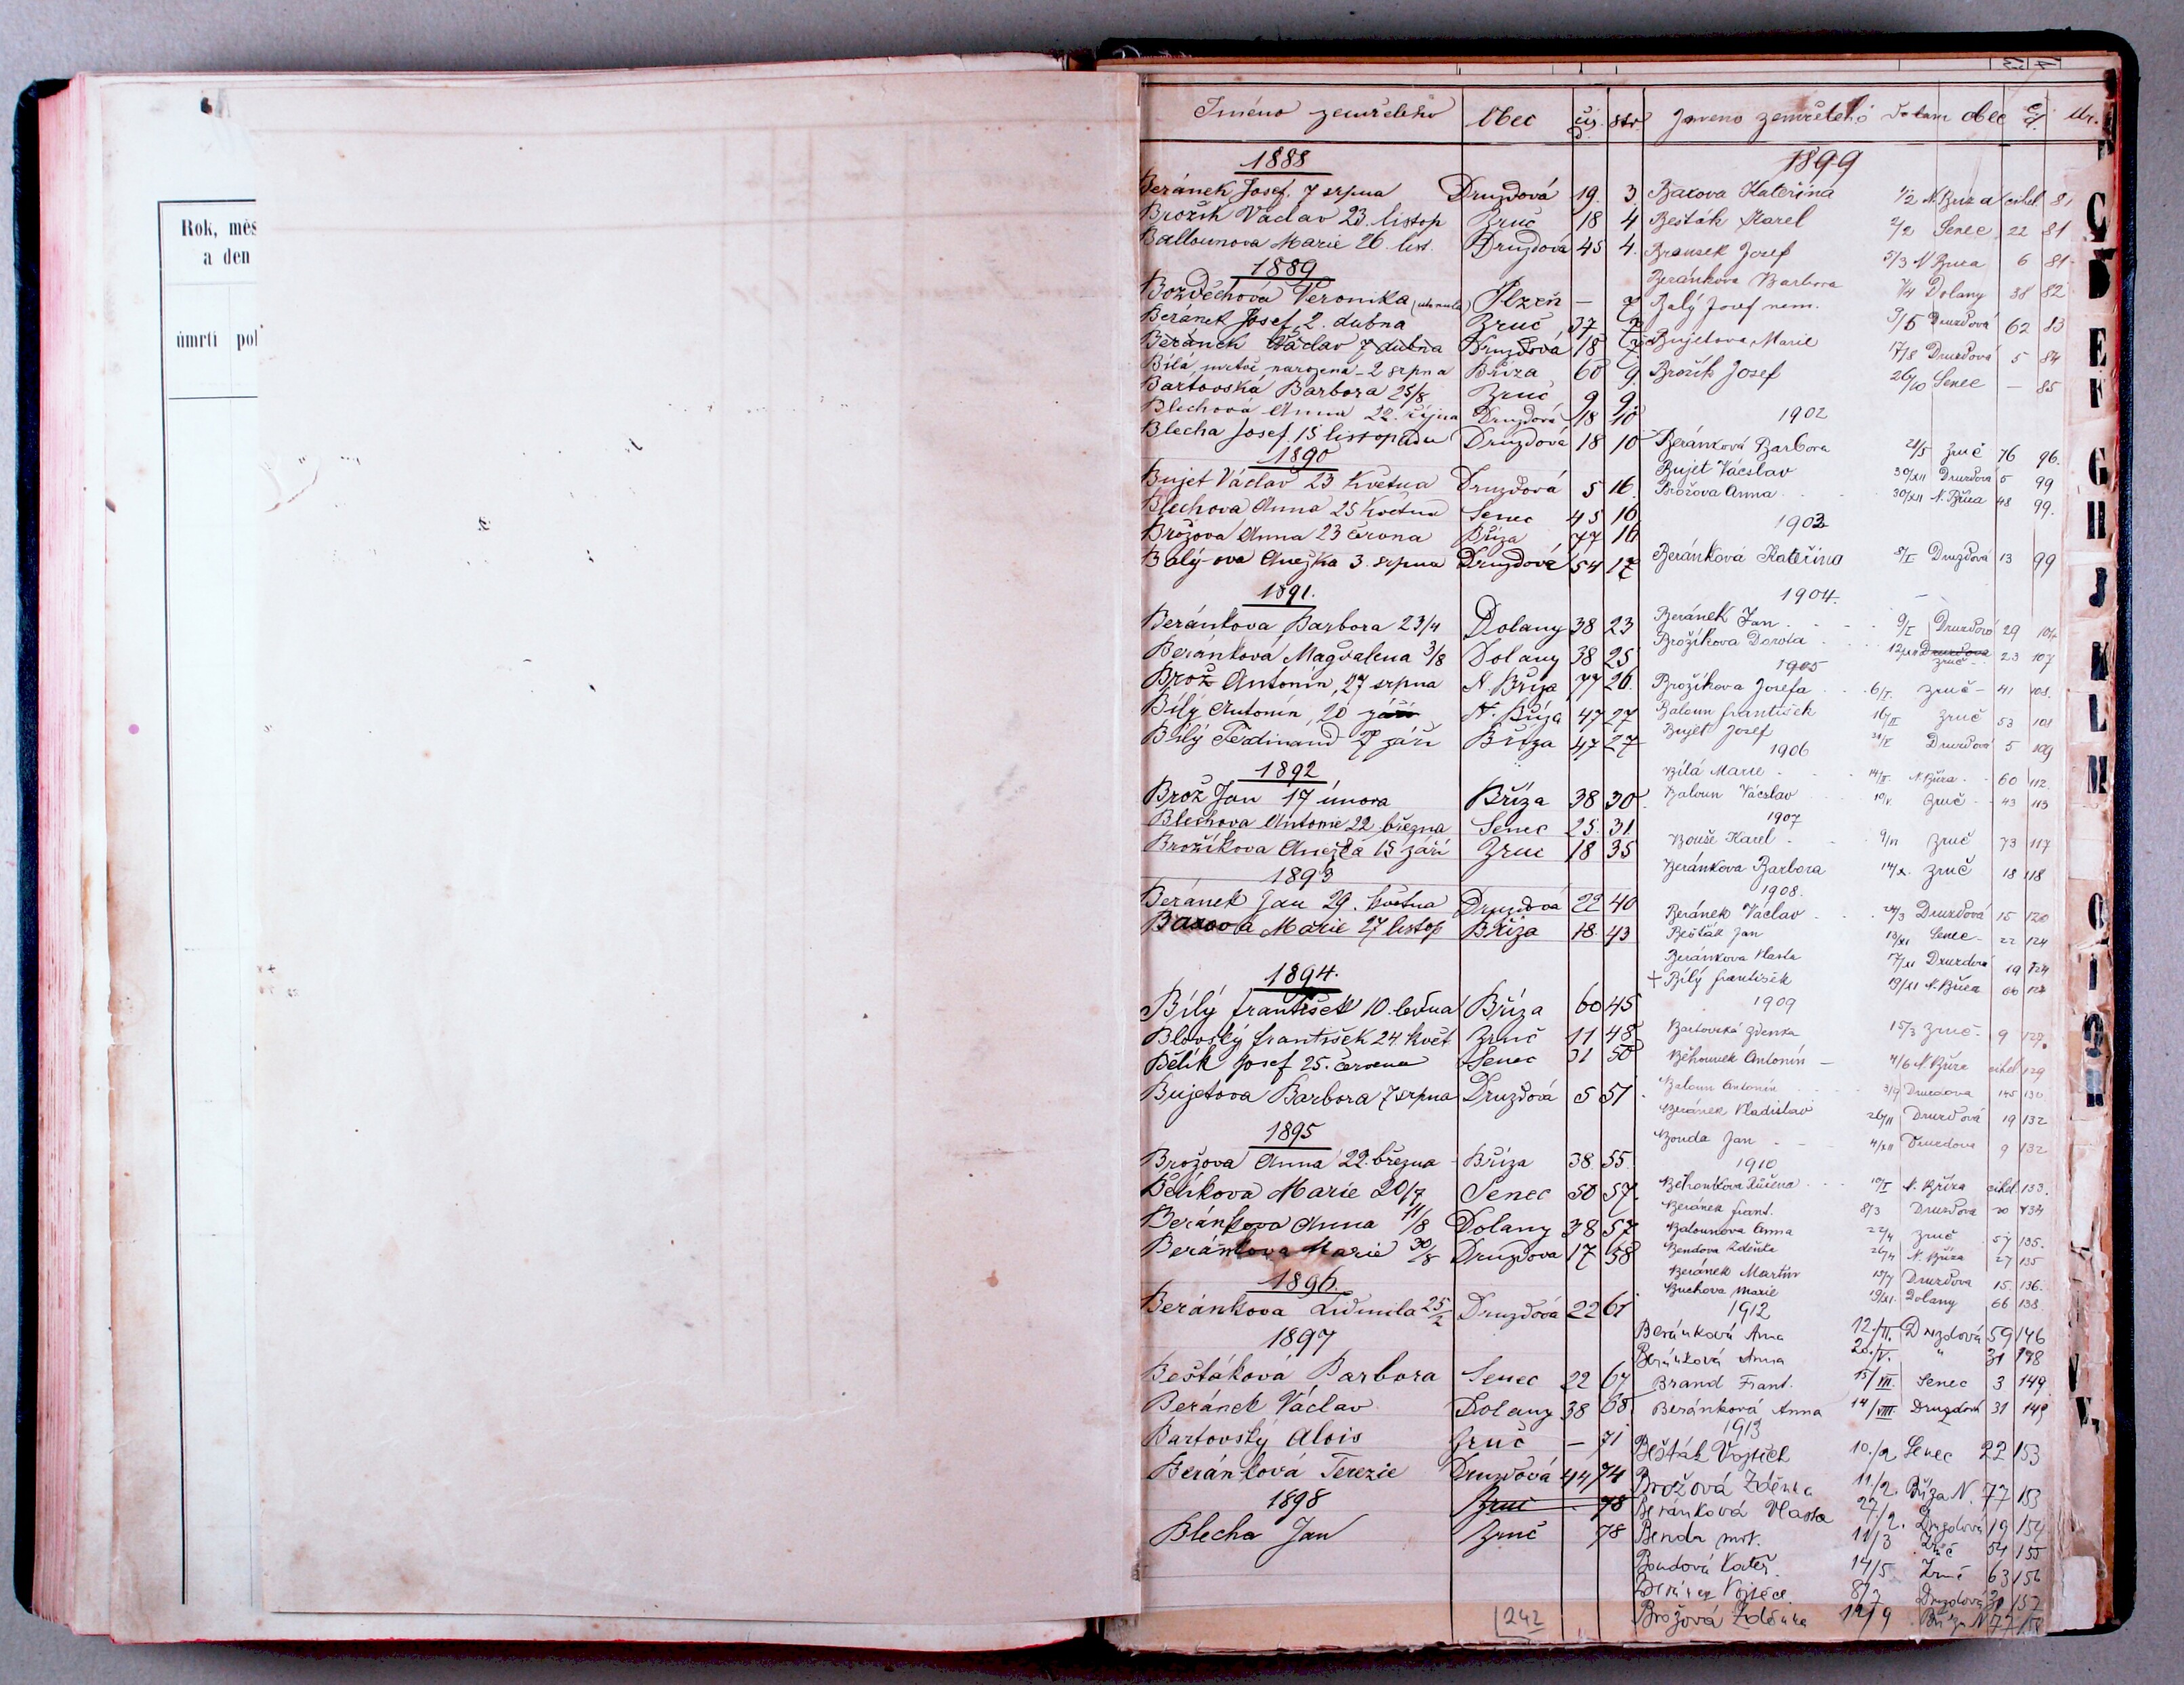 Rok, měs
a den
úmrtí pol
Jméno zemřelého Obec čís. d. str
1888
Beránek Josef, 7 srpna Druzdová 19. 3
Brožík Václav 23. listop Zruč 18 4
Ballounova Marie 26. list. Druzdová 45 4.
1889
Bozděchová Veronika Plzeň — 7
Beránek Josef, 2. dubna Zruč 37 7
Beránek Václav 7 dubna Druzdová 18 7
Bílá, mrtvě narozená - 2 srpna Bříza 60 9
Bartovská Barbora 25/8 Zruč 9 9
Blechová Anna 22. října Druzdová 18 10
Blecha Josef. 15 listopadu Druzdová 18 10
1890
Bujet Václav 23 Května Druzdová 5 16.
Blechova Anna 25 Května Senec 45 16
Brožova Anna 23 června Bříza 77 16
Balý-ova Anežka 3. srpna Druzdová 54 17
1891.
Beránkova Barbora 23/4 Dolany 38 23
Beránková Magdalena 3/8 Dolany 38 25
Brož Antonín, 27 srpna N. Bříza 77 26.
Bílý Antonín, 20 září N. Bříza 47 27
Bílý Ferdinand 27 září Bříza 47 27
1892
Brož Jan 17 února Bříza 38 30
Blechova Antonie 22 března Senec 25. 31.
Brožíkova Anežka 15 září Zruč 18 35
1893
Beránek Jan 29. května Druzdová 22 40
Baxova Marie 27 listop Bříza 18. 43
1894.
Bílý František 10. ledna Bříza 60 45
Blovský František 24. květ Zruč 11 48
Bělík Josef 25. června Senec 31 50
Bujetova Barbora 7 srpna Druzdová 5 51
1895
Brožova Anna 22. března Bříza 38. 55.
Bělíkova Marie 20/7 Senec 50 57.
Beránkova Anna 11/8 Dolany 38 57
Beránkova Marie 30/8 Druzdova 17 58
1896.
Beránkova Ludmila 25/2 Druzdová 22 61
1897
Bešťáková Barbora Senec 22 67
Beránek Václav Dolany 38 68
Bartovský Alois Zruč — 71
Beránková Terezie Druzdová 44 74
1898
Zruč 78
Blecha Jan Zruč 78
242
Jmeno zemřelého Datum obec čd. str.
1899
Baxova Kateřina 1/2 N. Bříza cihel 81
Bešták Karel 2/2 Senec 22 81
Brousek Josef 5/3 N Bříza 6 81
Beránkova Barbora 1/4 Dolany 38 82
Balý Josef nem. 9/5 Druzdová 62 83
Bujetova Marie 17/8 Druzdová 5 84
Brožík Josef 26/10 Senec — 85
1902
Beránková Barbora 21/5 Zruč 76 96.
Bujet Václav 30/XII Druzdová 5 99
Brožova Anna 30/XII N. Bříza 48 99.
1903
Beránková Kateřina 8/I Druzdová 13 99
1904.
Beránek Jan 9/I Druzdová 29 104
Brožíkova Dorota 12/XII Druzdova Zruč 23 107
1905
Brožíkova Josefa 6/I. Zruč - 41 108.
Baloun František 16/II Zruč 53 108
Bujet Josef Druzdová 5 109
1906
Bílá Marie 14/II. N. Bříza 60 112.
Baloun Václav 19/V. Zruč 43 113
1907
Bouše Karel Zruč 73 117
Beránkova Barbora 14/X. Zruč 18 118
1908.
Beránek Václav 24/3 Druzdová 15 120
Bešťák Jan 13/XI Senec 22 124
Beránkova Vlasta 17/XI Druzdová 19 124
+ Bílý František 19/XI N. Bříza 60 124
1909
Bartovská Zdenka 15/3 Zruč 9 127.
Běhounek Antonín 4/6 N. Bříza cihel 129
Baloun Antonín 3/9 Druzdova 145 130
Beránek Vladislav 26/11 Druzdová 19 132
Bouda Jan 4/XII Druzdova 9 132
1910
Běhounkova Růžena 10/I N. Bříza cihel 133.
Beránek Frant. 8/3 Druzdová 20 134
Balounova Anna 22/4 Zruč 54 135.
Bendova Zdeňka 26/4 N. Bříza 27 135
Beránek Martin 13/7 Druzdova 15. 136.
Buchova Marie 19/XI. Dolany 66 138.
1912
Beránková Anna 12./II. Druzdová 59 146
Beránková Anna 20./V. " 31 148
Brand Frant. 15/VII. Senec 3 149
Beránková Anna 14/VIII. Druzdová 31 149
1913
Bešťák Vojtěch 10./2 Senec 22 153
Brožová Zděnka 11/2. Bříza N. 77 153
Beránková Vlasta 27/2. Druzdová 19 154
Benda mrt. 11/3 Zruč 54 155
Boudová Kateř. 14/5 Zruč 63 156
Beránek Vojtěch 8/7 Druzdová 31 157
Brožová Zděnka 12/9 Bříza N 77 158
Č
D
E
F
G
H
J
K
L
M